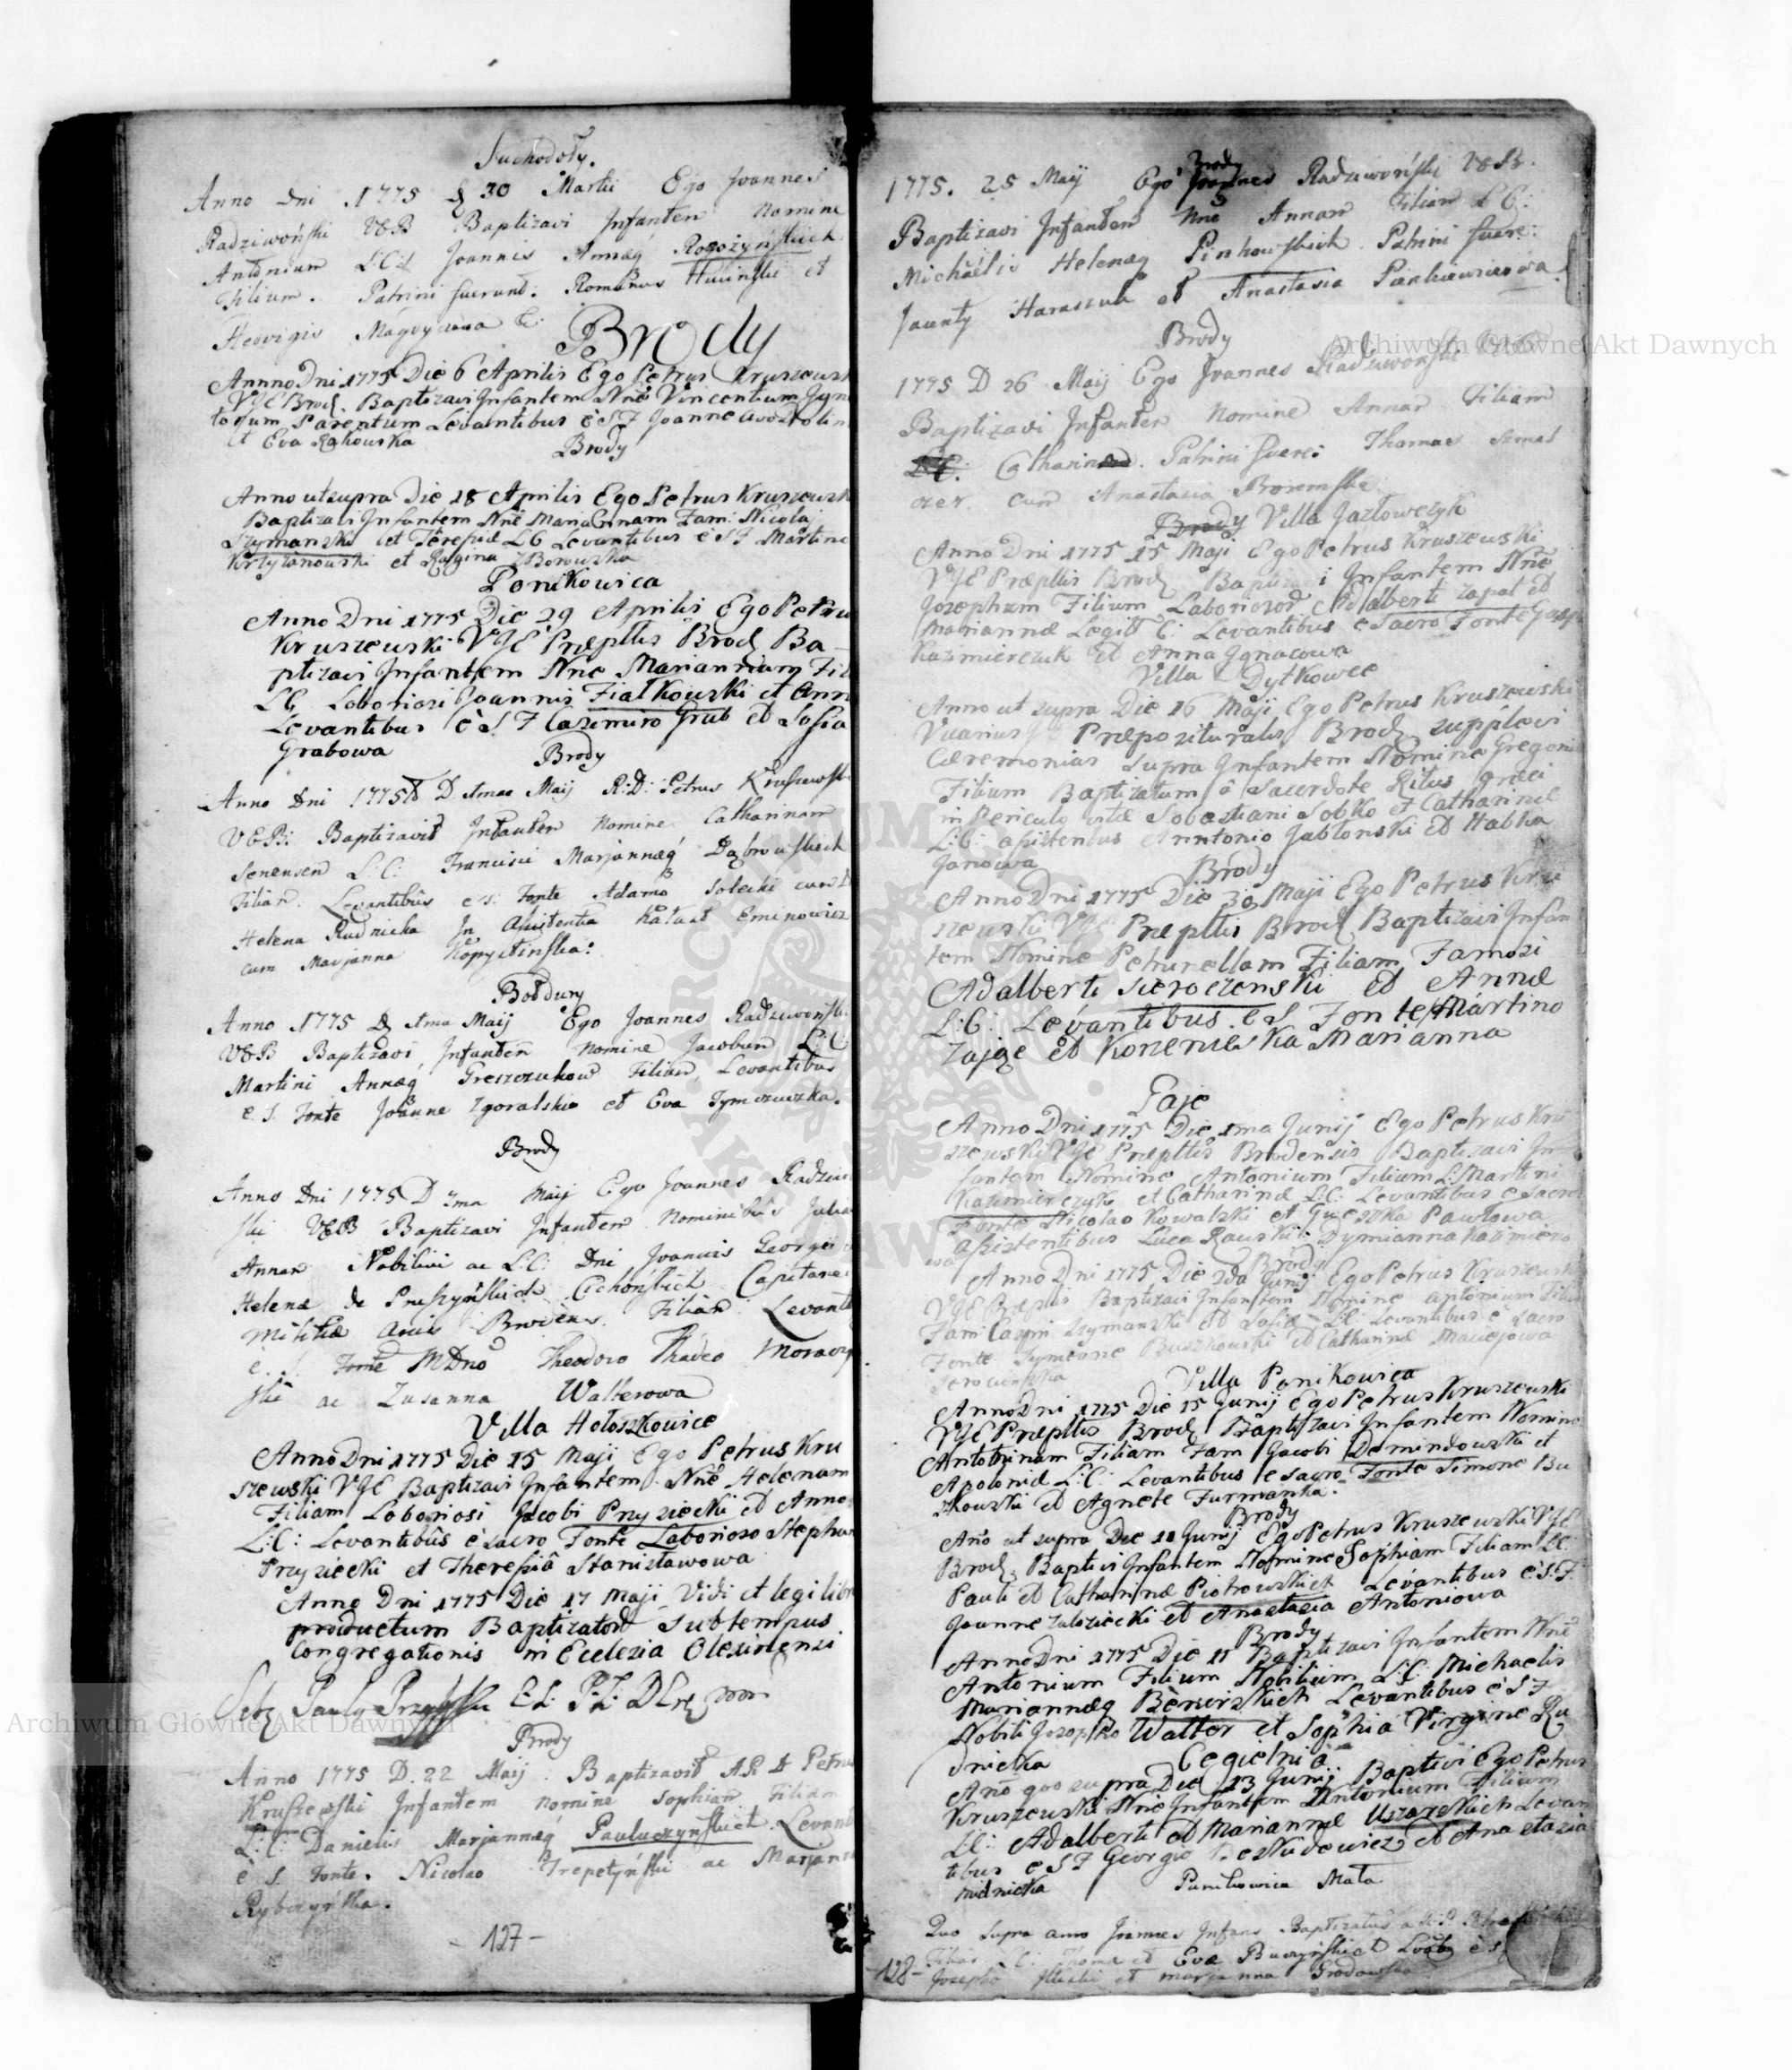 Suchodoły.
Anno Dni 1775 D 20 Martii Ego Joannes
Radziwoński VEB Baptizavi Infantem Nomine
Antonium L:C: Joannis Annæq Rogożyńskich
Filium. Patrini fuerunt: Romanus Huciński et
Hedvigis
Brody
Anno Dni 1775 Die 6 Aprilis Ego Petrus Kruszewsk
VJE Brod. Baptizavi Infantem Nne Vincentium Jgno
torum Parentum Levantibus è S F Joanne
et Eva Rakowska
Brody
Anno ut supra Die 18 Aprilis Ego Petrus Kruszewsk
Baptizavi Infantem Nne Mariannam Fam: Nicolaj
Szymanski et Teresiæ LC Levantibus è S F Martino
Krzyżanowski et Regina Zborowska
Ponikowica
Anno Dni 1775 Die 29 Aprilis Ego Petru
Kruszewski VJE Præpttis Brod Ba-
ptizavi Infantem Nne Mariannam Fil
LC Laboriosi Joannis Fiałkowski et Ann
Levantibus è S F Cazimiro Grab et Sofia
Grabowa
Brody
Anno Dni 1775 D 1mae Maij R:D: Petrus Kruszewsk
VEB: Baptizavit Infantem Nomine Catharinam
Senensem L:C: Francisci Marjannæq Dąbrowskich
Filiam. Levantibus e s: Fonte Adamo Solecki cum
Helena Rudnicka In Assistentia Kaiust Eminowicz
cum Marjanna Kopystińska:
Bołdury
Anno 1775 D 1ma Maij Ego Joannes Radziwońsk
VEB Baptizavi Infantem Nomine Jacobum L:C:
Martini Annæq Greszczukow Filium, Levantibus
e S. Fonte Joanne Zgoralskie et Eva Tymczuczka.
Brody
Anno Dni 1775 D 7ma Maij Ego Joannes Radziwo
ski VEB Baptizavi Infantem Nominibus Julia
Annam Nobilium ac L:C: Dni Joannis Georgii
Helenæ de Pruszyńskich Cichońskich Capitanei
Militiæ Arcis Brodens. Filiam Levantib
e. S. Fonte MDno Theodoro Thadeo Morawsk
ski ac Zusanna Walterowa
Villa Hołoszkowice
Anno Dni 1775 Die 15 Maji Ego Petrus Kru
szewski VJE Baptizavi Infantem Nne Helenam
Filiam Laboriosi Jacobi Przysiecki et Anna
L:C: Levantibus è sacro Fonte Laborioso Stephan
Przysiecki et Theresiâ Stanisławowa
Anno Dni 1775 Die 17 Maji Vidi et legi libr
productum Baptizatorum Sub tempus
Congregationis in Ecclesia Olesinensi
Brody
Anno 1775 D. 22 Maij. Baptizavit AR D Petru
Kruszewski Infantem nomine Sophiam Filiam
L:C: Danielis Marjannæq Pauluczyńskich Levant
è S. Fonte. Nicolao Trepetyński ac Marjann
Rybczyńska.
- 127 -
Brody
1775. 25 Maij Ego Joannes Radziwoński VEB.
Baptizavi Infantem Nne Annam Filiam L C:
Michaelis Helenæq Pinkowskich. Patrini fuere:
Jacenty Harasiuk et Anastasia Pienkiewiczowa.
Brody
1775 D 26 Maij Ego Joannes Radziwoński VEB
Baptizavi Infantem Nomine Annam Filiam
Catharinæ. Patrini fuere: Thomas
cum Anastasia Boremska
Brody Villa Jazłowczyk
Anno Dni 1775 15 Maji Ego Petrus Kruszewski
VJE Præpttis Brod Baptizavi Infantem Nne
Josephum Filium Laboriosor Adalberti Zapał et
Mariannæ Legitt C: Levantibus e Sacro Fonte
Kazmierczuk et Anna Jgnacowa
Villa Dytkowce
Anno ut supra Die 16 Maji Ego Petrus Kruszewski
Vicarius Præposituralis Brod supplevi
Cæremonias supra Infantem Nomine Gregoriu
Filium Baptizatum à Sacerdote Ritus græci
in Periculo vitæ Sebastiani Sobko et Catharinæ
L:C: assistentus Anntonio Jabłonski et Habka
Janowa
Brody
Anno Dni 1775 Die 30 Maji Ego Petrus Kru
szewski VJE Præpttis Brod Baptizavi Infan
tem Nomine Petrunellam Filiam Famosi
Adalberti Sieroczenski et Annæ
L:C: Levantibus e S Fonte Martino
Zając et Korzenieska Marianna
Gaje
Anno Dni 1775 Die 1ma Junij Ego Petrus Kru
szewski VJE Præpttis Brodensis Baptizavi In
fantem Nomine Antonium Filium L. Martini
Kazmierczyk et Catharinæ L:C: Levantibus e Sacro
Fonte Nicolao Kowalski et Pawłowa
Assistentibus Luca Rauski Dymianna Kazimiero
wa
Brody
Anno Dni 1775 Die 2da Junij Ego Petrus Kruszewsk
VJE Præpttis Baptizavi Infantem Nomine Antonium Filiu
Fam: Cazim Szymanski et Sofiæ LC: Levantibus è sacro
Fonte Symeone Buszkowski et Catharinæ Maciejowa
Villa Ponikowica
Anno Dni 1775 Die 15 Junij Ego Petrus Kruszewski
VJE Præpttis Brod Baptizavi Infantem Nomine
Antoninam Filiam Fam Jacobi Domindowski et
Apoloniæ L:C: Levantibus e sacro Fonte Simone Bu
szkowski et Agnete Furmanka.
Brody
Ano ut supra Die 11 Junij Ego Petrus Kruszewski VJE
Brod. Baptivi Infantem Nomine Sophiam Filiam LC
Pauli et Catharinæ Piotrowskich Levantibus è S.F.
Joanne Załoziecki et Anastasia Antoniowa
Brody
Anno Dni 1775 Die 11 Baptizavi Infantem Nne
Antonium Filium Nobilium L:C: Michaelis
Mariannæq Levantibus è S F
Nobili Josepho Walter et Sophia Virgine Ru
dnicka
Cegielnia
Ano quo supra Die 13 Junij Baptivi Ego Petrus
Kruszewski Nne Infantem Antonium Filium
LC: Adalberti et Mariannæ Levan
tibus e S F Georgio et Anastazia
Midnicka
Punikowica Mała
Quo supra anno Joannes Infans Baptizatus a R:P. Petro
Filius L. C. Thoma et Eva Buczyńskich Levtbq è S
Josepho et Marjanna Grodowska
-128-
Archiwum Główne Akt Dawnych
Archiwum Główne Akt Dawnych